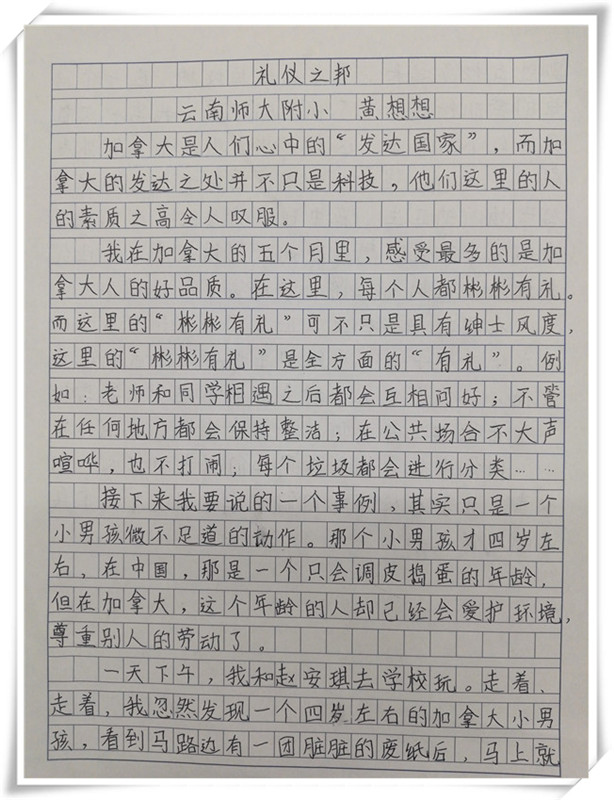 礼仪之邦
云南师大附小 黄想想
加拿大是人们心中的“发达国家”，而加
拿大的发达之处并不只是科技，他们这里的人
的素质之高令人叹服。
我在加拿大的五个月里，感受最多的是加
拿大人的好品质。在这里，每个人都彬彬有礼。
而这里的“彬彬有礼”可不只是具有绅士风度，
这里的“彬彬有礼”是全方面的“有礼”。例
如：老师和同学相遇之后都会互相问好；不管
在任何地方都会保持整洁；在公共场合不大声
喧哗，也不打闹；每个垃圾都会进行分类……
接下来我要说的一个事例，其实只是一个
小男孩微不足道的动作。那个小男孩才四岁左
右，在中国，那是一个只会调皮捣蛋的年龄，
但在加拿大，这个年龄的人却已经会爱护环境，
尊重别人的劳动了。
一天下午，我和赵安琪去学校玩。走着、
走着，我忽然发现一个四岁左右的加拿大小男
孩，看到马路边有一团脏脏的废纸后，马上就